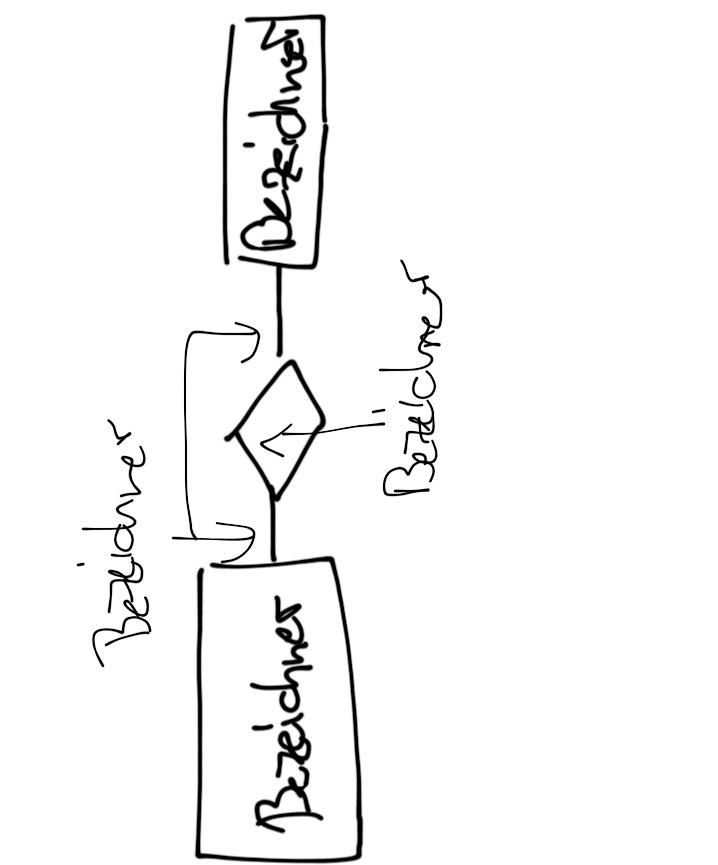 Bezeichner
Bezeichner
Bezeichner
Bezeichner